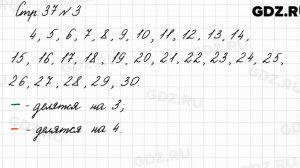 GDZ.RU
Стр. 37 № 3
4, 5, 6, 7, 8, 9, 10, 11, 12, 13, 14,
15, 16, 17, 18, 19, 20, 21, 22, 23, 24, 25,
26, 27, 28, 29, 30.
- делятся на 3;
- делятся на 4.
GDZ.RU